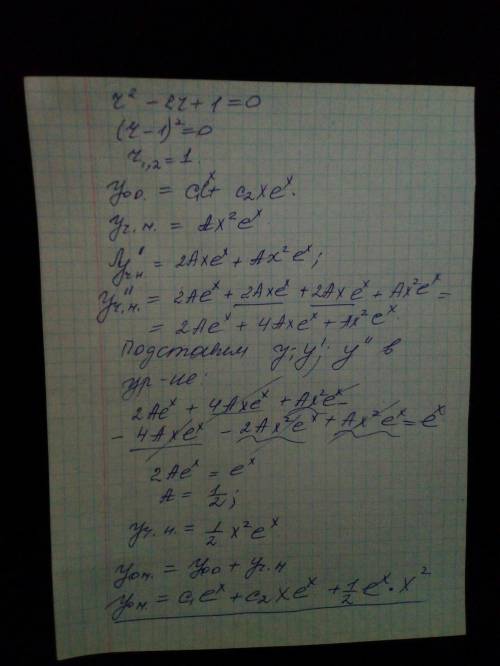 r² - 2r + 1 = 0
(r - 1)² = 0
r₁,₂ = 1.
yоо. = c₁eˣ + c₂xeˣ.
yч.н. = Ax²eˣ
y'ч.н. = 2Axeˣ + Ax²eˣ;
y''ч.н. = 2Aeˣ + 2Axeˣ + 2Axeˣ + Ax²eˣ =
= 2Aeˣ + 4Axeˣ + Ax²eˣ.
Подставим y; y'; y'' в
ур-ие:
2Aeˣ + 4Axeˣ + Ax²eˣ -
- 4Axeˣ - 2Ax²eˣ + Ax²eˣ = eˣ
2Aeˣ = eˣ
A = 1/2;
yч.н. = 1/2 x²eˣ
yон. = yоо + yч.н
yон. = c₁eˣ + c₂xeˣ + 1/2 eˣ · x²